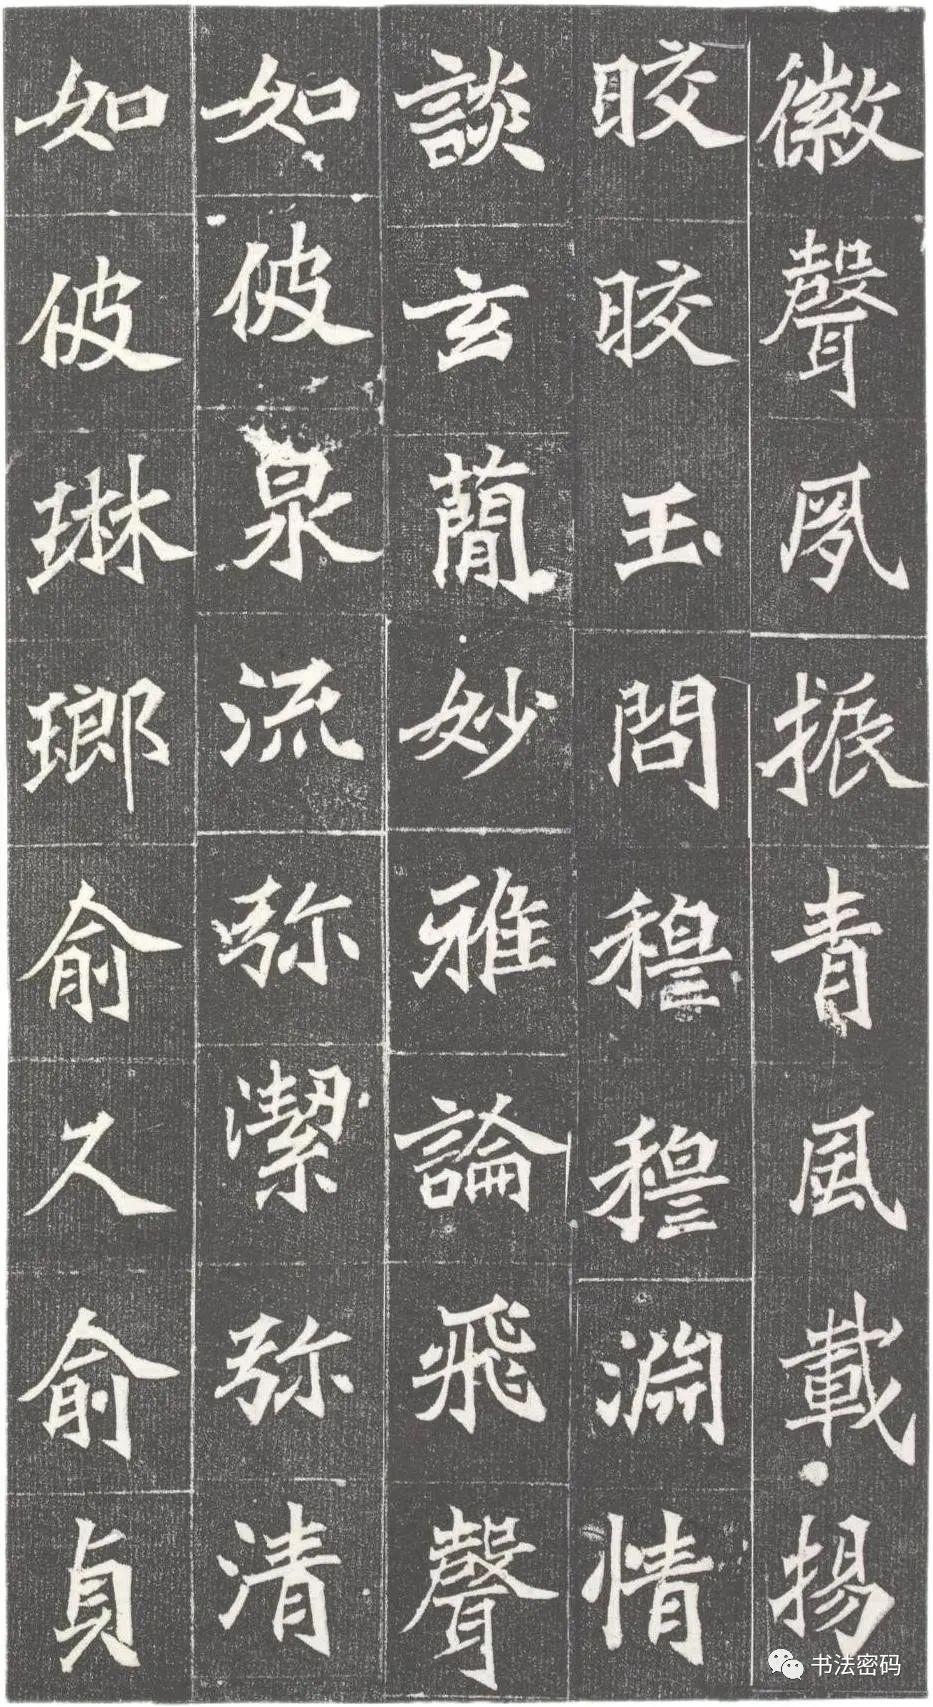 徽聲夙振青風載揚
晈晈玉問穆穆淵情
談玄蕑妙雅論飛聲
如彼泉流弥潔弥清
如彼琳瑯俞久俞貞
书法密码